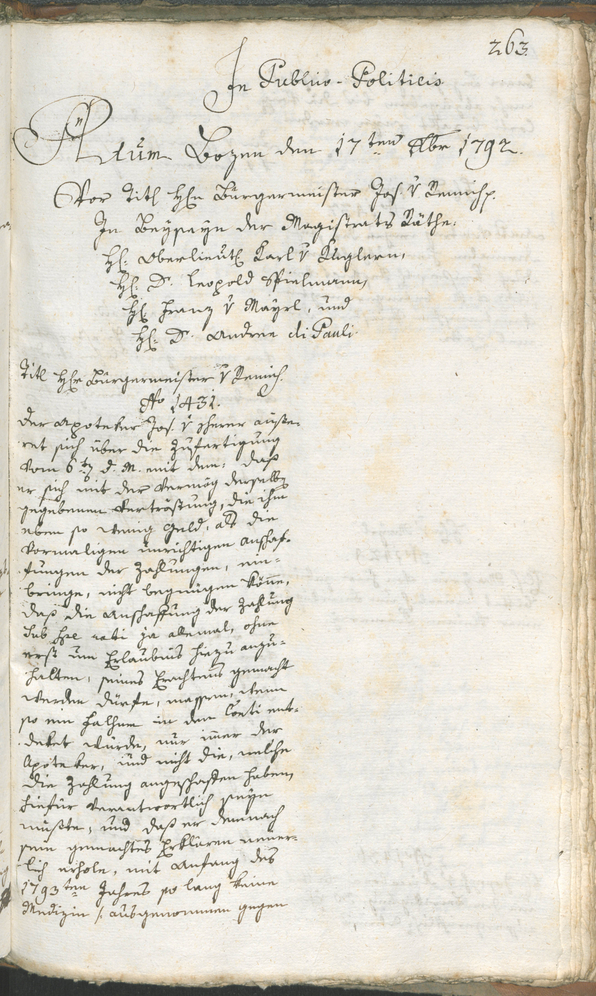 263.
In Publico-Politicis
Actum Bozen den 17ten 9br 1792.
Vor Titl Hhn Burgermeister Jos. v Remich.
In Beyseyn der Magistrats Räthe:
Hl: Oberlieut: Karl v Kuglern,
Hl: D. Leopold Spielmann,
Hl: Franz v Mayrl, und
Hl: D. Andree di Pauli
Titl Hhr Burgermeister v Remich.
No 1431.
Der Apoteker Jos. v Scherer äuße-
ret sich über die Zufertigung
vom 6ten d. M. mit dem: daß
er sich mit der vermög derselben
gegebenen Vertröstung, die ihm
eben so wenig Geld, als die
vormaligen unrichtigen anschaf-
fungen der Zahlungen, ein-
bringe, nicht begnügen könn,
daß die Anschaffung der Zahlung
sub spe rati ja allemal, ohne
erst um Erlaubnis hiezu anzu-
halten, seines Erachtens gemacht
werden dürfe, massen, wenn
so ein falsum in den Conti ent-
deket würde, nur imer der
Apoteker, und nicht die, welche
die Zahlung angeschaffen haben,
hiefür verantwortlich seyn
müßte, und daß er demnach
sein gemachtes Erklären neuer-
lich erhole, mit Anfang des
1793ten Jahres so lang keine
Medizin /: ausgenommen gegen